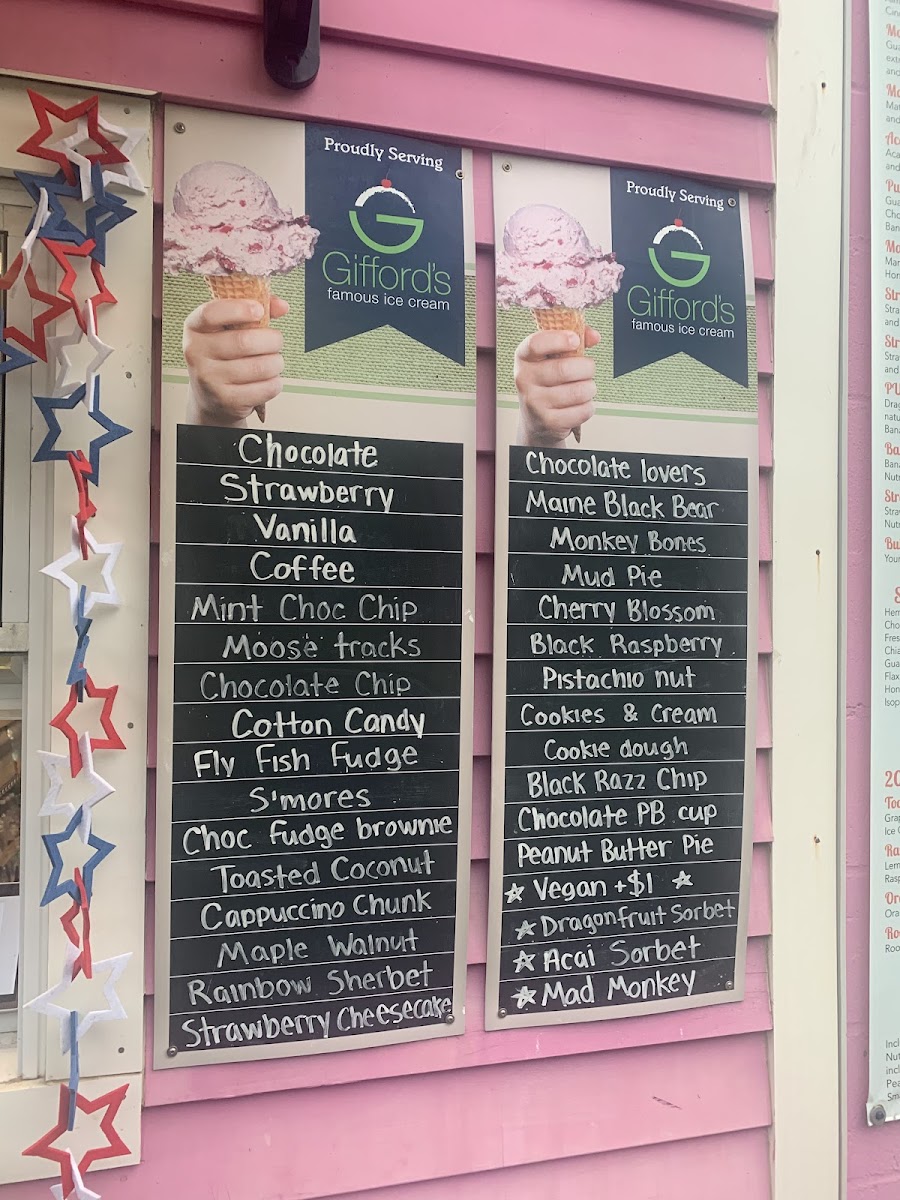 Proudly Serving
G
Gifford's
famous ice cream
Chocolate
Strawberry
Vanilla
Coffee
Mint Choc Chip
Moose tracks
Chocolate Chip
Cotton Candy
Fly Fish Fudge
S'mores
Choc Fudge brownie
Toasted Coconut
Cappuccino Chunk
Maple Walnut
Rainbow Sherbet
Strawberry Cheesecake
Proudly Serving
G
Gifford's
famous ice cream
Chocolate lovers
Maine Black Bear
Monkey Bones
Mud Pie
Cherry Blossom
Black Raspberry
Pistachio nut
Cookies & Cream
Cookie dough
Black Razz Chip
Chocolate PB cup
Peanut Butter Pie
☆ Vegan +$1 ☆
☆ Dragonfruit Sorbet
☆ Acai Sorbet
☆ Mad Monkey